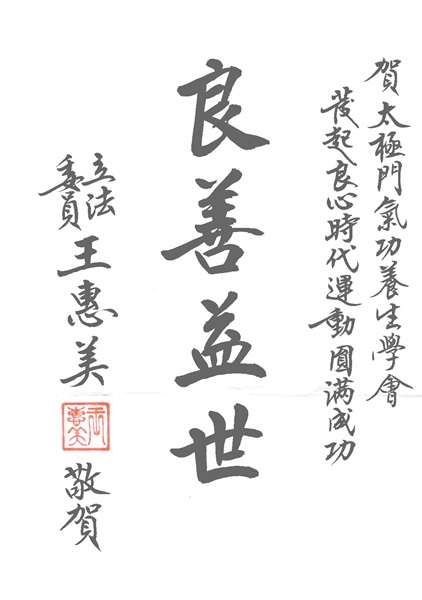 賀太極門氣功養生學會
發起良心時代運動圓満成功
良善益世
立法
委員
王惠美
敬賀